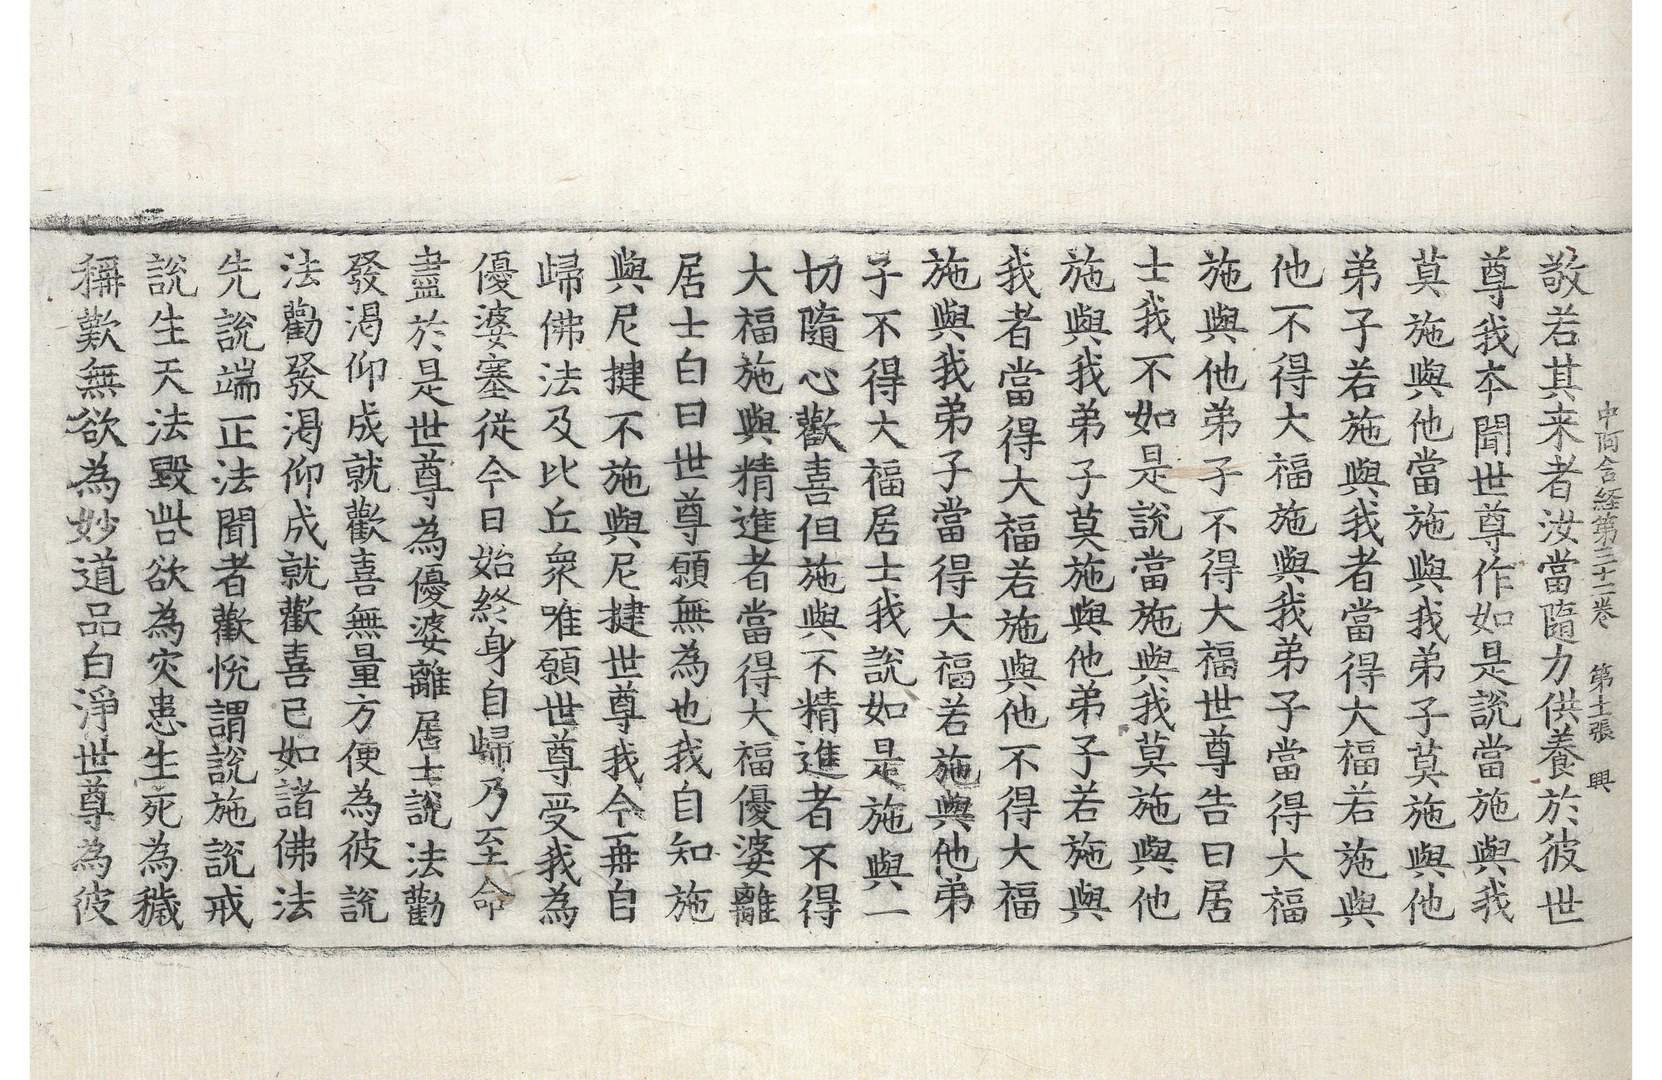 中阿含経第三十二卷 第十一張 興
敬若其来者汝當隨力供養於彼世
尊我本聞世尊作如是說當施與我
莫施與他當施與我弟子莫施與他
弟子若施與我者當得大福若施與
他不得大福施與我弟子當得大福
施與他弟子不得大福世尊告曰居
士我不如是說當施與我莫施與他
施與我弟子莫施與他弟子若施與
我者當得大福若施與他不得大福
施與我弟子當得大福若施與他弟
子不得大福居士我說如是施與一
切隨心歡喜但施與不精進者不得
大福施與精進者當得大福優婆離
居士白曰世尊願無為也我自知施
與尼揵不施與尼揵世尊我今再自
歸佛法及比丘衆唯願世尊受我為
優婆塞從今日始終身自歸乃至命
盡於是世尊為優婆離居士說法勸
發渴仰成就歡喜無量方便為彼說
法勸發渴仰成就歡喜已如諸佛法
先說端正法聞者歡悅謂說施說戒
說生天法毀呰欲為灾患生死為穢
稱歎無欲為妙道品白淨世尊為彼